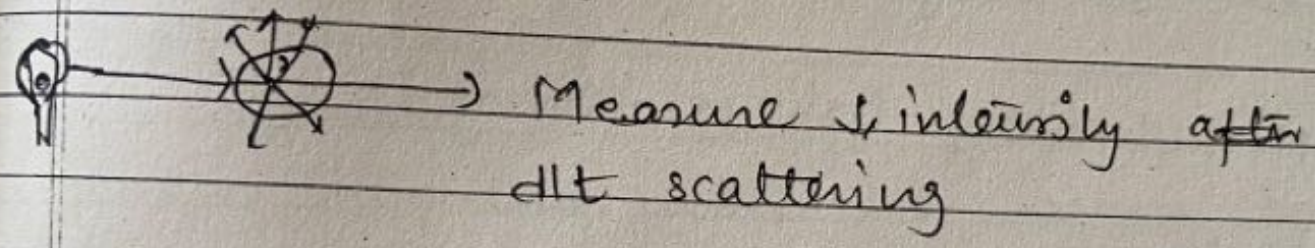 Measure ↓ intensity after
dlt scattering